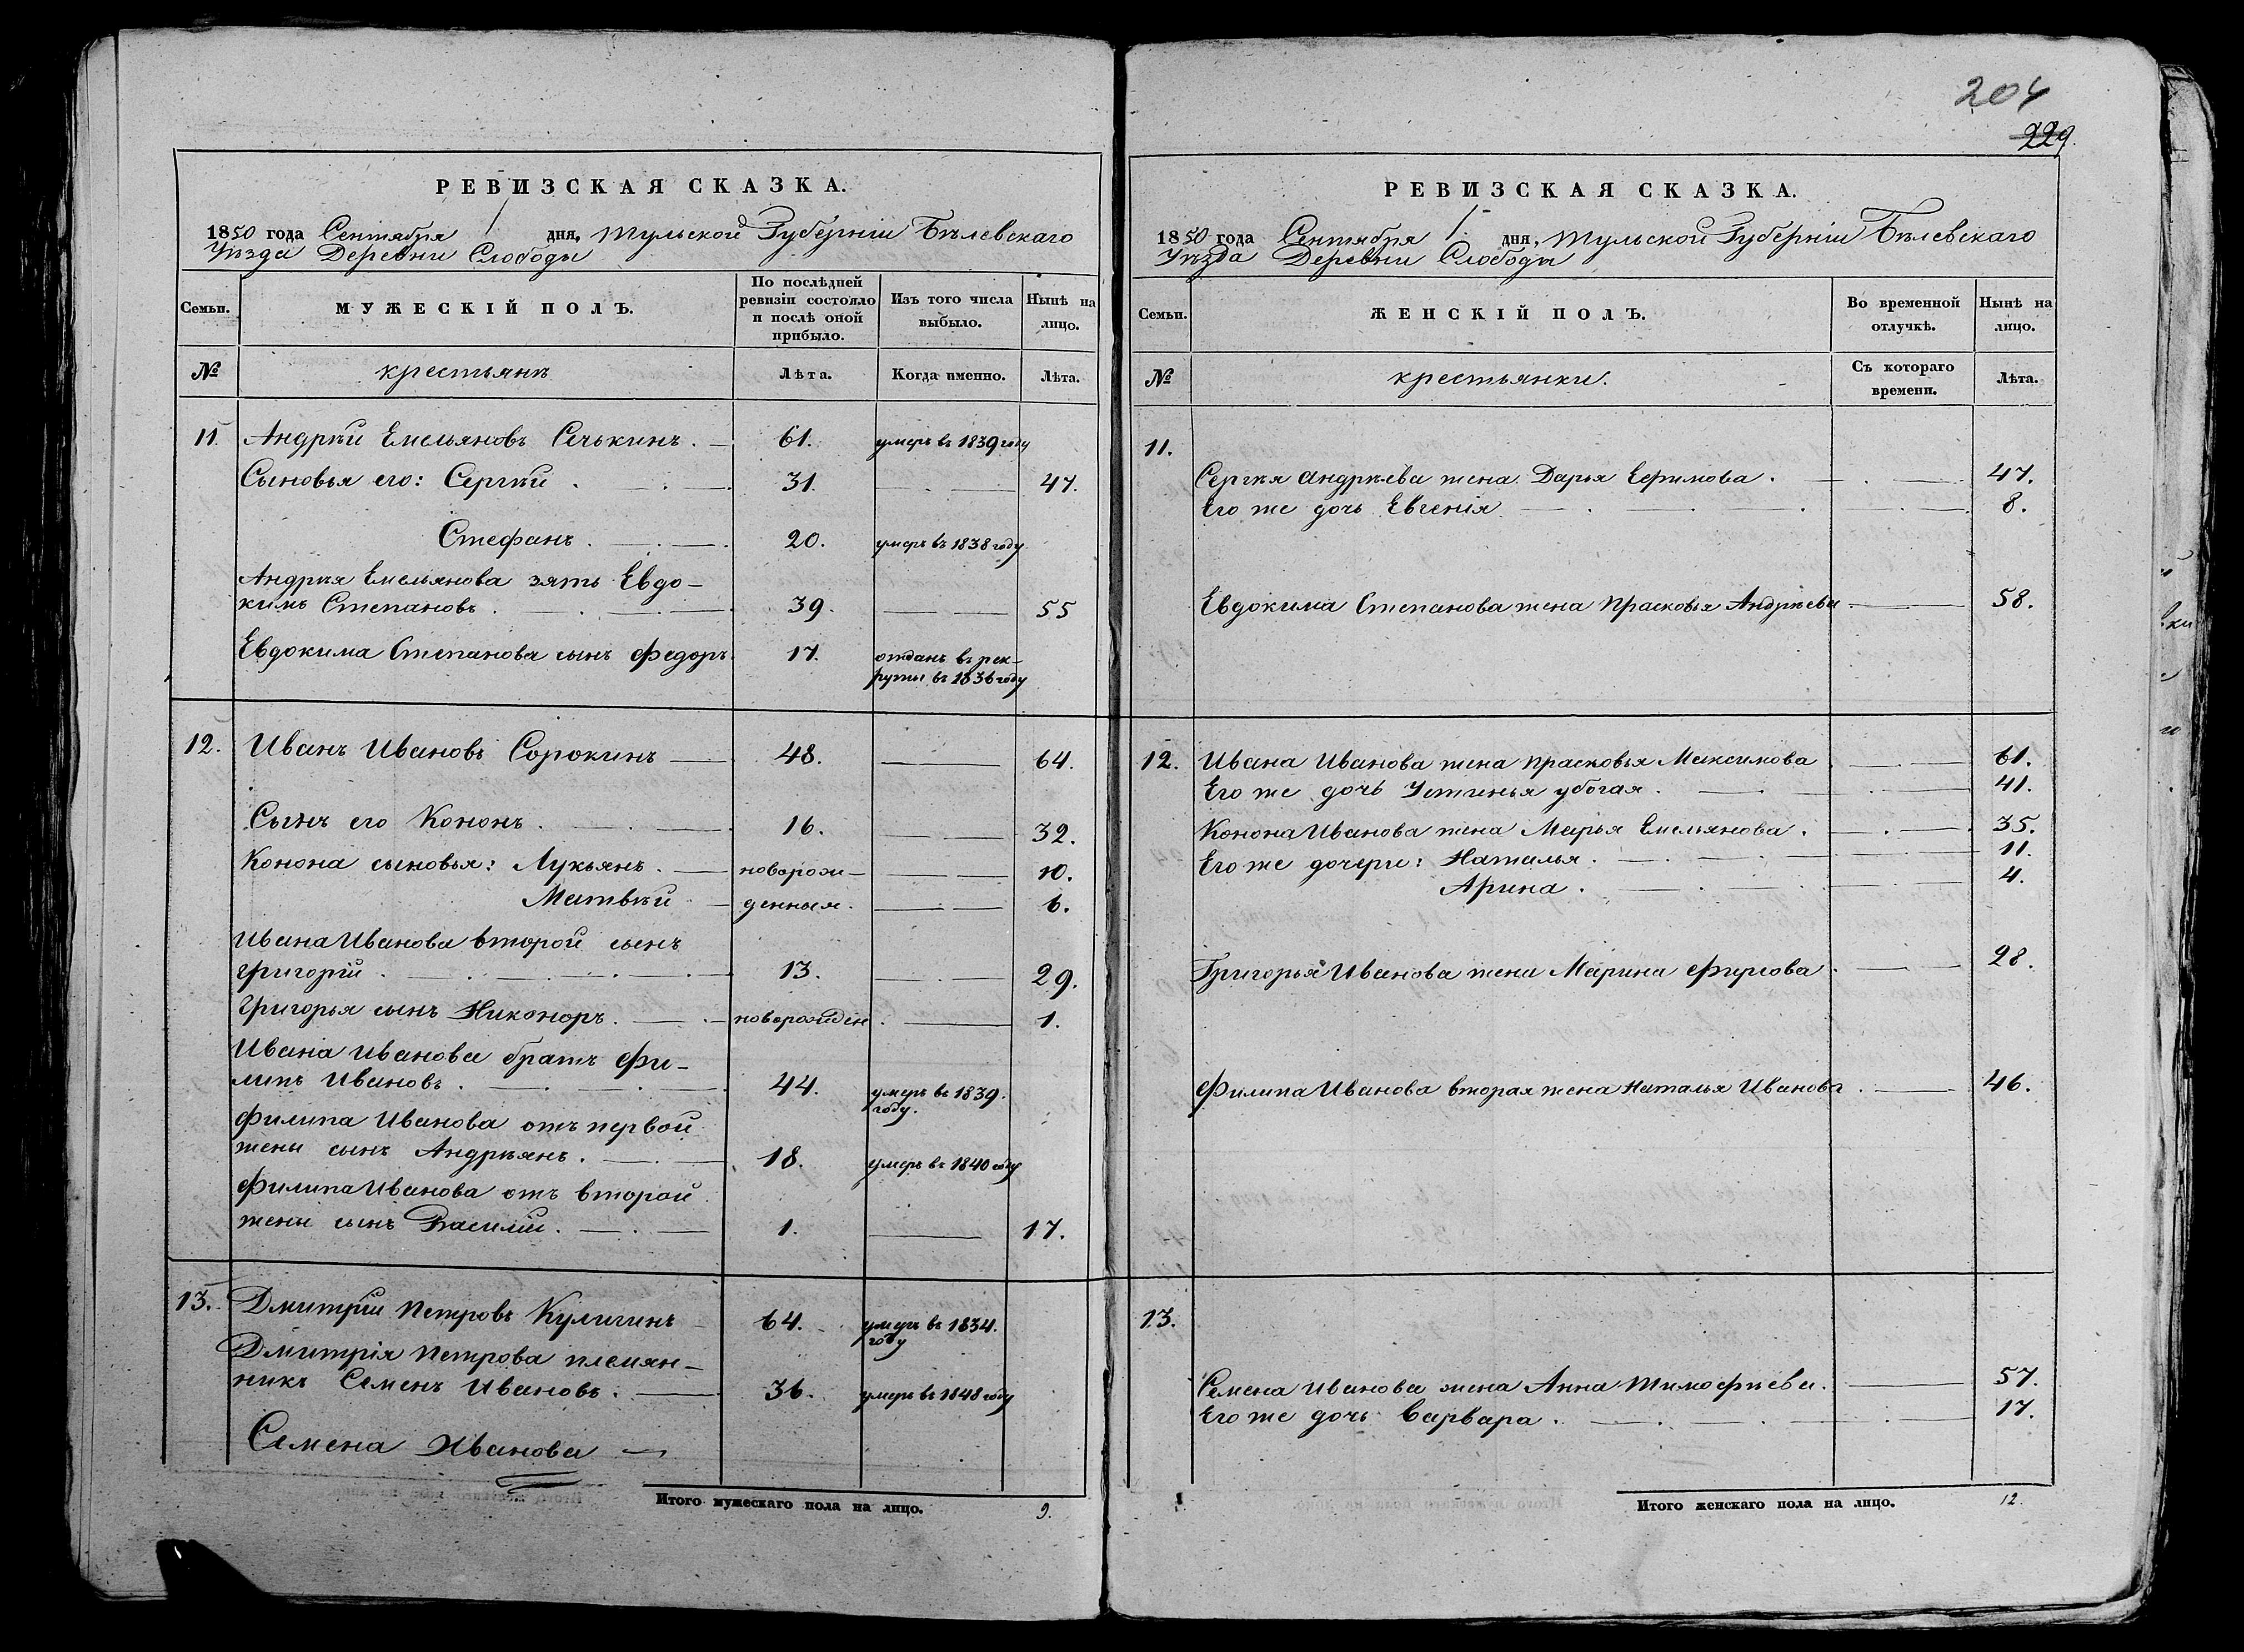 РЕВИЗСКАЯ СКАЗКА.
1850 года Сентября 1 дня, Тульской Губерніи Бѣлевскаго
Уѣзда Деревни Слободы
Семьи. МУЖЕСКІЙ ПОЛЪ. По послѣдней ревизіи состояло и послѣ оной прибыло. Изъ того числа выбыло. Нынѣ на лицо.
№ крестьянъ Лѣта. Когда именно. Лѣта.
11. Андрѣй Емельяновъ Сечькинъ. 61. умеръ въ 1839 году
Сыновья его: Сергѣй. 31. 47.
Стефанъ. 20. умеръ въ 1838 году
Андрѣя Емельянова зять Евдо-
кимъ Степановъ. 39. 55
Евдокима Степанова сынъ Федоръ. 17. отданъ въ рек-
руты въ 1836 году
12. Иванъ Ивановъ Сорокинъ 48. 64.
Сынъ его Кононъ. 16. 32.
Конона сыновья: Лукьянъ. новорож- 10.
Матвѣй денныя. 6.
Ивана Иванова второй сынъ
Григорій. 13. 29.
Григорья сынъ Никоноръ. новорожден. 1.
Ивана Иванова братъ Фи-
липъ Ивановъ. 44. умеръ въ 1839.
году.
Филипа Иванова отъ первой
жены сынъ Андрѣянъ. 18. умеръ въ 1840 году
Филипа Иванова отъ второй
жены сынъ Василій. 1. 17.
13. Дмитрій Петровъ Кулигинъ 64. умеръ въ 1834.
году
Дмитрія Петрова племян-
никъ Семенъ Ивановъ. 36. умеръ въ 1848 году
Семена Иванова
Итого мужескаго пола на лицо. 9.
204
229.
РЕВИЗСКАЯ СКАЗКА.
1850 года Сентября 1 дня, Тульской Губерніи Бѣлевскаго
Уѣзда Деревни Слободы
Семьи. ЖЕНСКІЙ ПОЛЪ. Во временной отлучкѣ. Нынѣ на лицо.
№ крестьянки. Съ котораго времени. Лѣта.
11.
Сергѣя Андрѣева жена Дарья Ефимова. 47.
Его же дочь Евгенія 8.
Евдокима Степанова жена Прасковья Андрѣева 58.
12. Ивана Иванова жена Прасковья Максимова 61.
Его же дочь Устинья убогая. 41.
Конона Иванова жена Марья Емельянова. 35.
Его же дочери: Наталья. 11.
Арина. 4.
Григорья Иванова жена Марина Фирсова. 28.
Филипа Иванова вторая жена Наталья Иванова. 46.
13.
Семена Иванова жена Анна Тимофѣева. 57.
Его же дочь Варвара. 17.
Итого женскаго пола на лицо. 12.